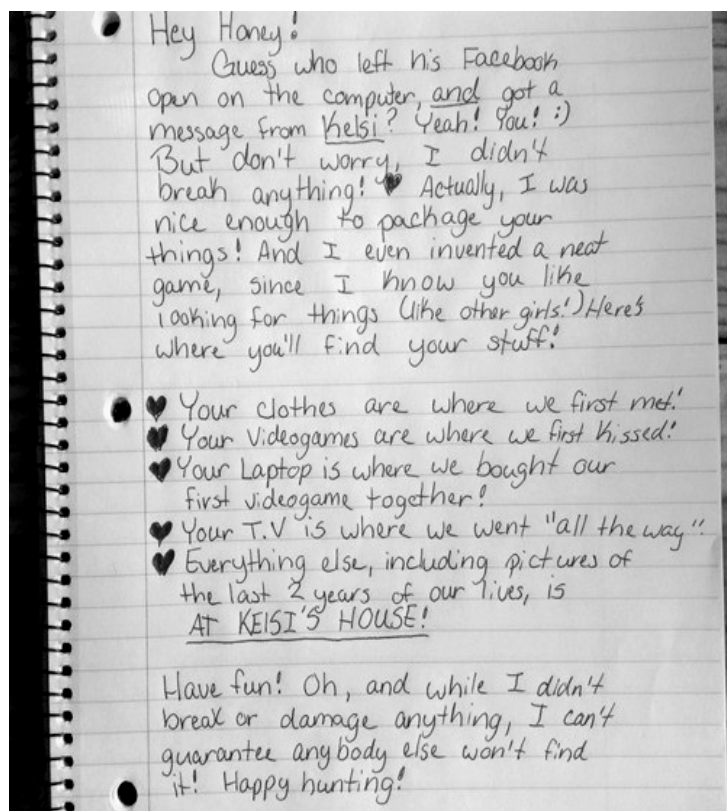 Hey Honey!
Guess who left his Facebook
open on the computer, and got a
message from Kelsi? Yeah! You! :)
But don't worry, I didn't
break anything! ♥ Actually, I was
nice enough to package your
things! And I even invented a neat
game, since I know you like
looking for things (like other girls!) Here's
where you'll find your stuff!
♥ Your clothes are where we first met!
♥ Your Videogames are where we first kissed!
♥ Your Laptop is where we bought our
first videogame together!
♥ Your T.V is where we went "all the way"!
♥ Everything else, including pictures of
the last 2 years of our lives, is
AT KElSI'S HOUSE!
Have fun! Oh, and while I didn't
break or damage anything, I can't
guarantee anybody else won't find
it! Happy hunting!